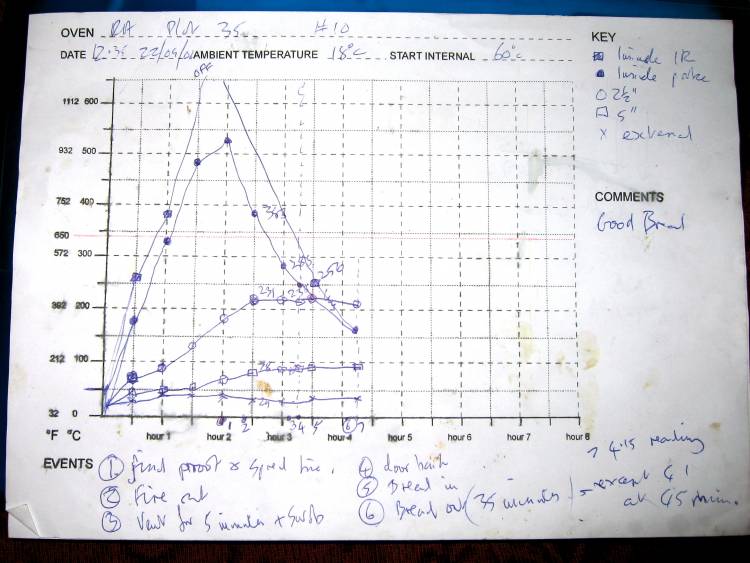 OVEN Plot 35 #10
KEY
DATE 12.35 22/09/ AMBIENT TEMPERATURE 18°C START INTERNAL 60°C
Inside IR
Inside probe
2½"
5"
x external
OFF
1112 600
932 500
752 400
COMMENTS
Good Bread
650
572 300
250
392 200
231
212 100
28
32 0
1 2 3 4 5 6
°F °C hour 1 hour 2 hour 3 hour 4 hour 5 hour 6 hour 7 hour 8
EVENTS
① final proof & spread fire.
② Fire out
③ Vent for 5 minutes + Swab
④ door back
⑤ Bread in
⑥ Bread out (35 minutes) = except 4 1
at 45 min.
→ 4.15 reading